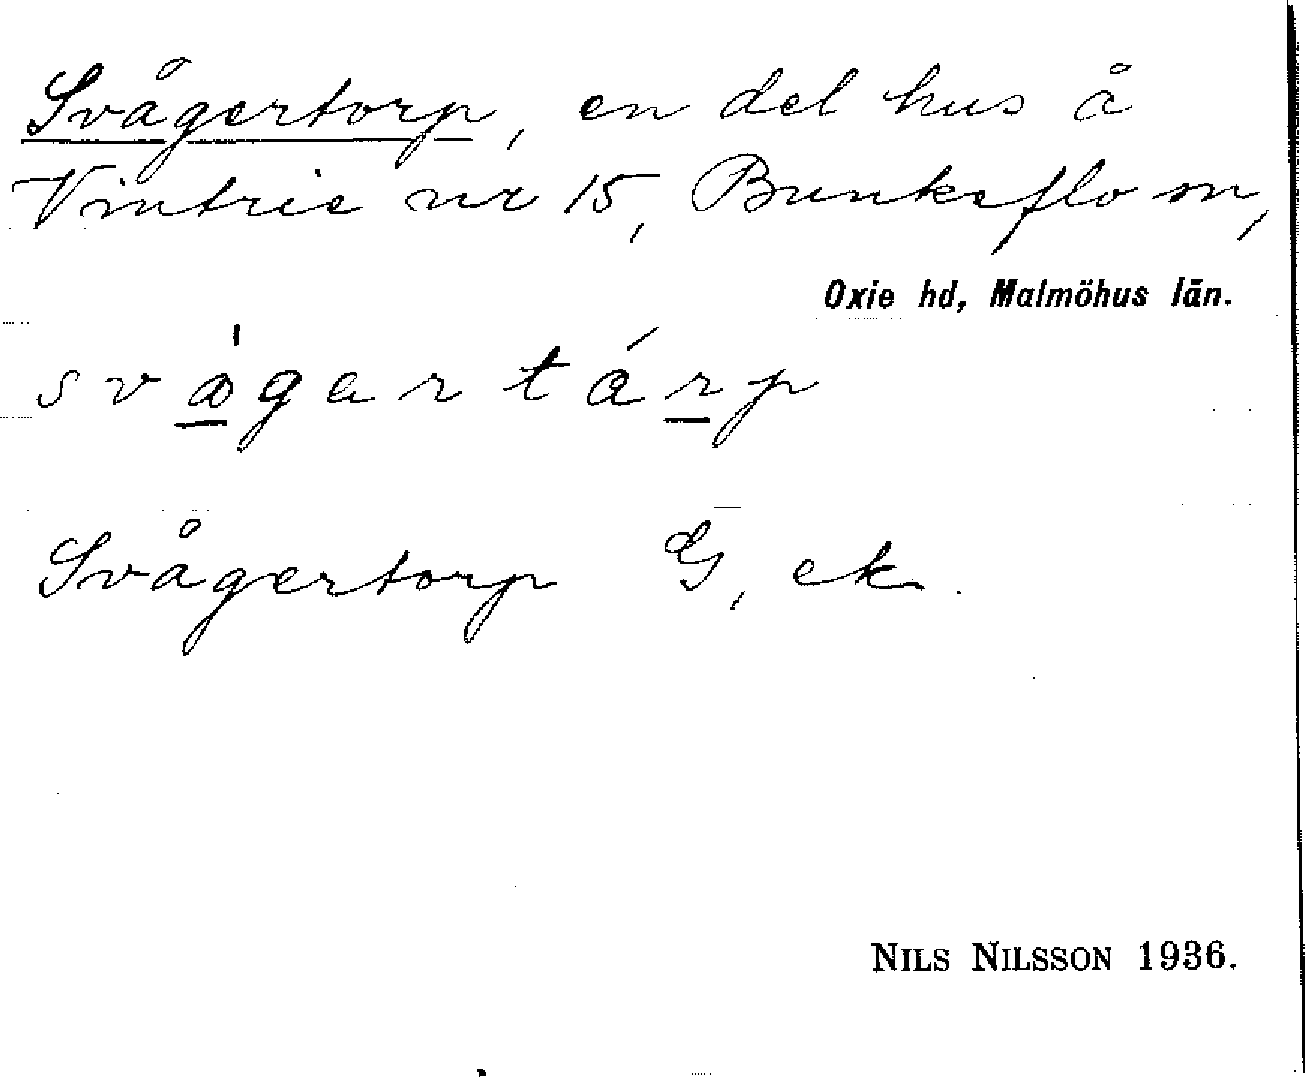 Svågertorp, en del hus å
Vintrie nr 15, Bunkeflo sn,
Oxie hd, Malmöhus län.
Svågertorp G, ek.
NILS NILSSON 1936.